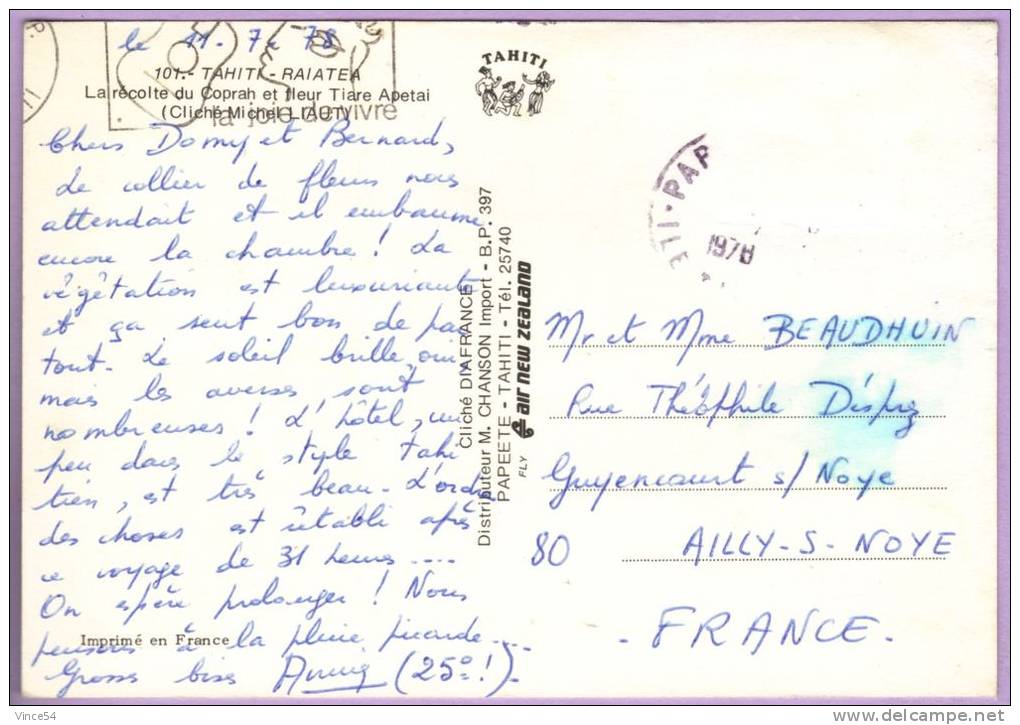 le 11-7-78
101.- TAHITI - RAIATEA
La récolte du Coprah et fleur Tiare Apetai
(Cliché Michel LIAUT)
la joie de vivre
Chers Domy et Bernard,
Le collier de fleurs nous
attendait et il embaume
encore la chambre ! La
végétation est luxuriante
et ça sent bon de par
tout. Le soleil brille, oui
mais les averses sont
nombreuses ! L'hôtel, un
peu dans le style tahi
tien, est très beau - L'ordre
des choses est rétabli après
ce voyage de 31 heures....
On espère prolonger ! Nous
pensons à la pluie picarde....
Grosses bises (25° !).
Imprimé en France
TAHITI
Cliché DIAFRANCE
Distributeur M. CHANSON Import - B.P. 397
PAPEETE - TAHITI - Tél. 25740
FLY air new zealand
ILE * ILI - PAP
1978
Mr et Mme BEAUDHUIN
Rue Théophile
Guyencourt s/ Noye
80 AILLY-S-NOYE
- FRANCE -
Vince54
http://www.delcampe.net